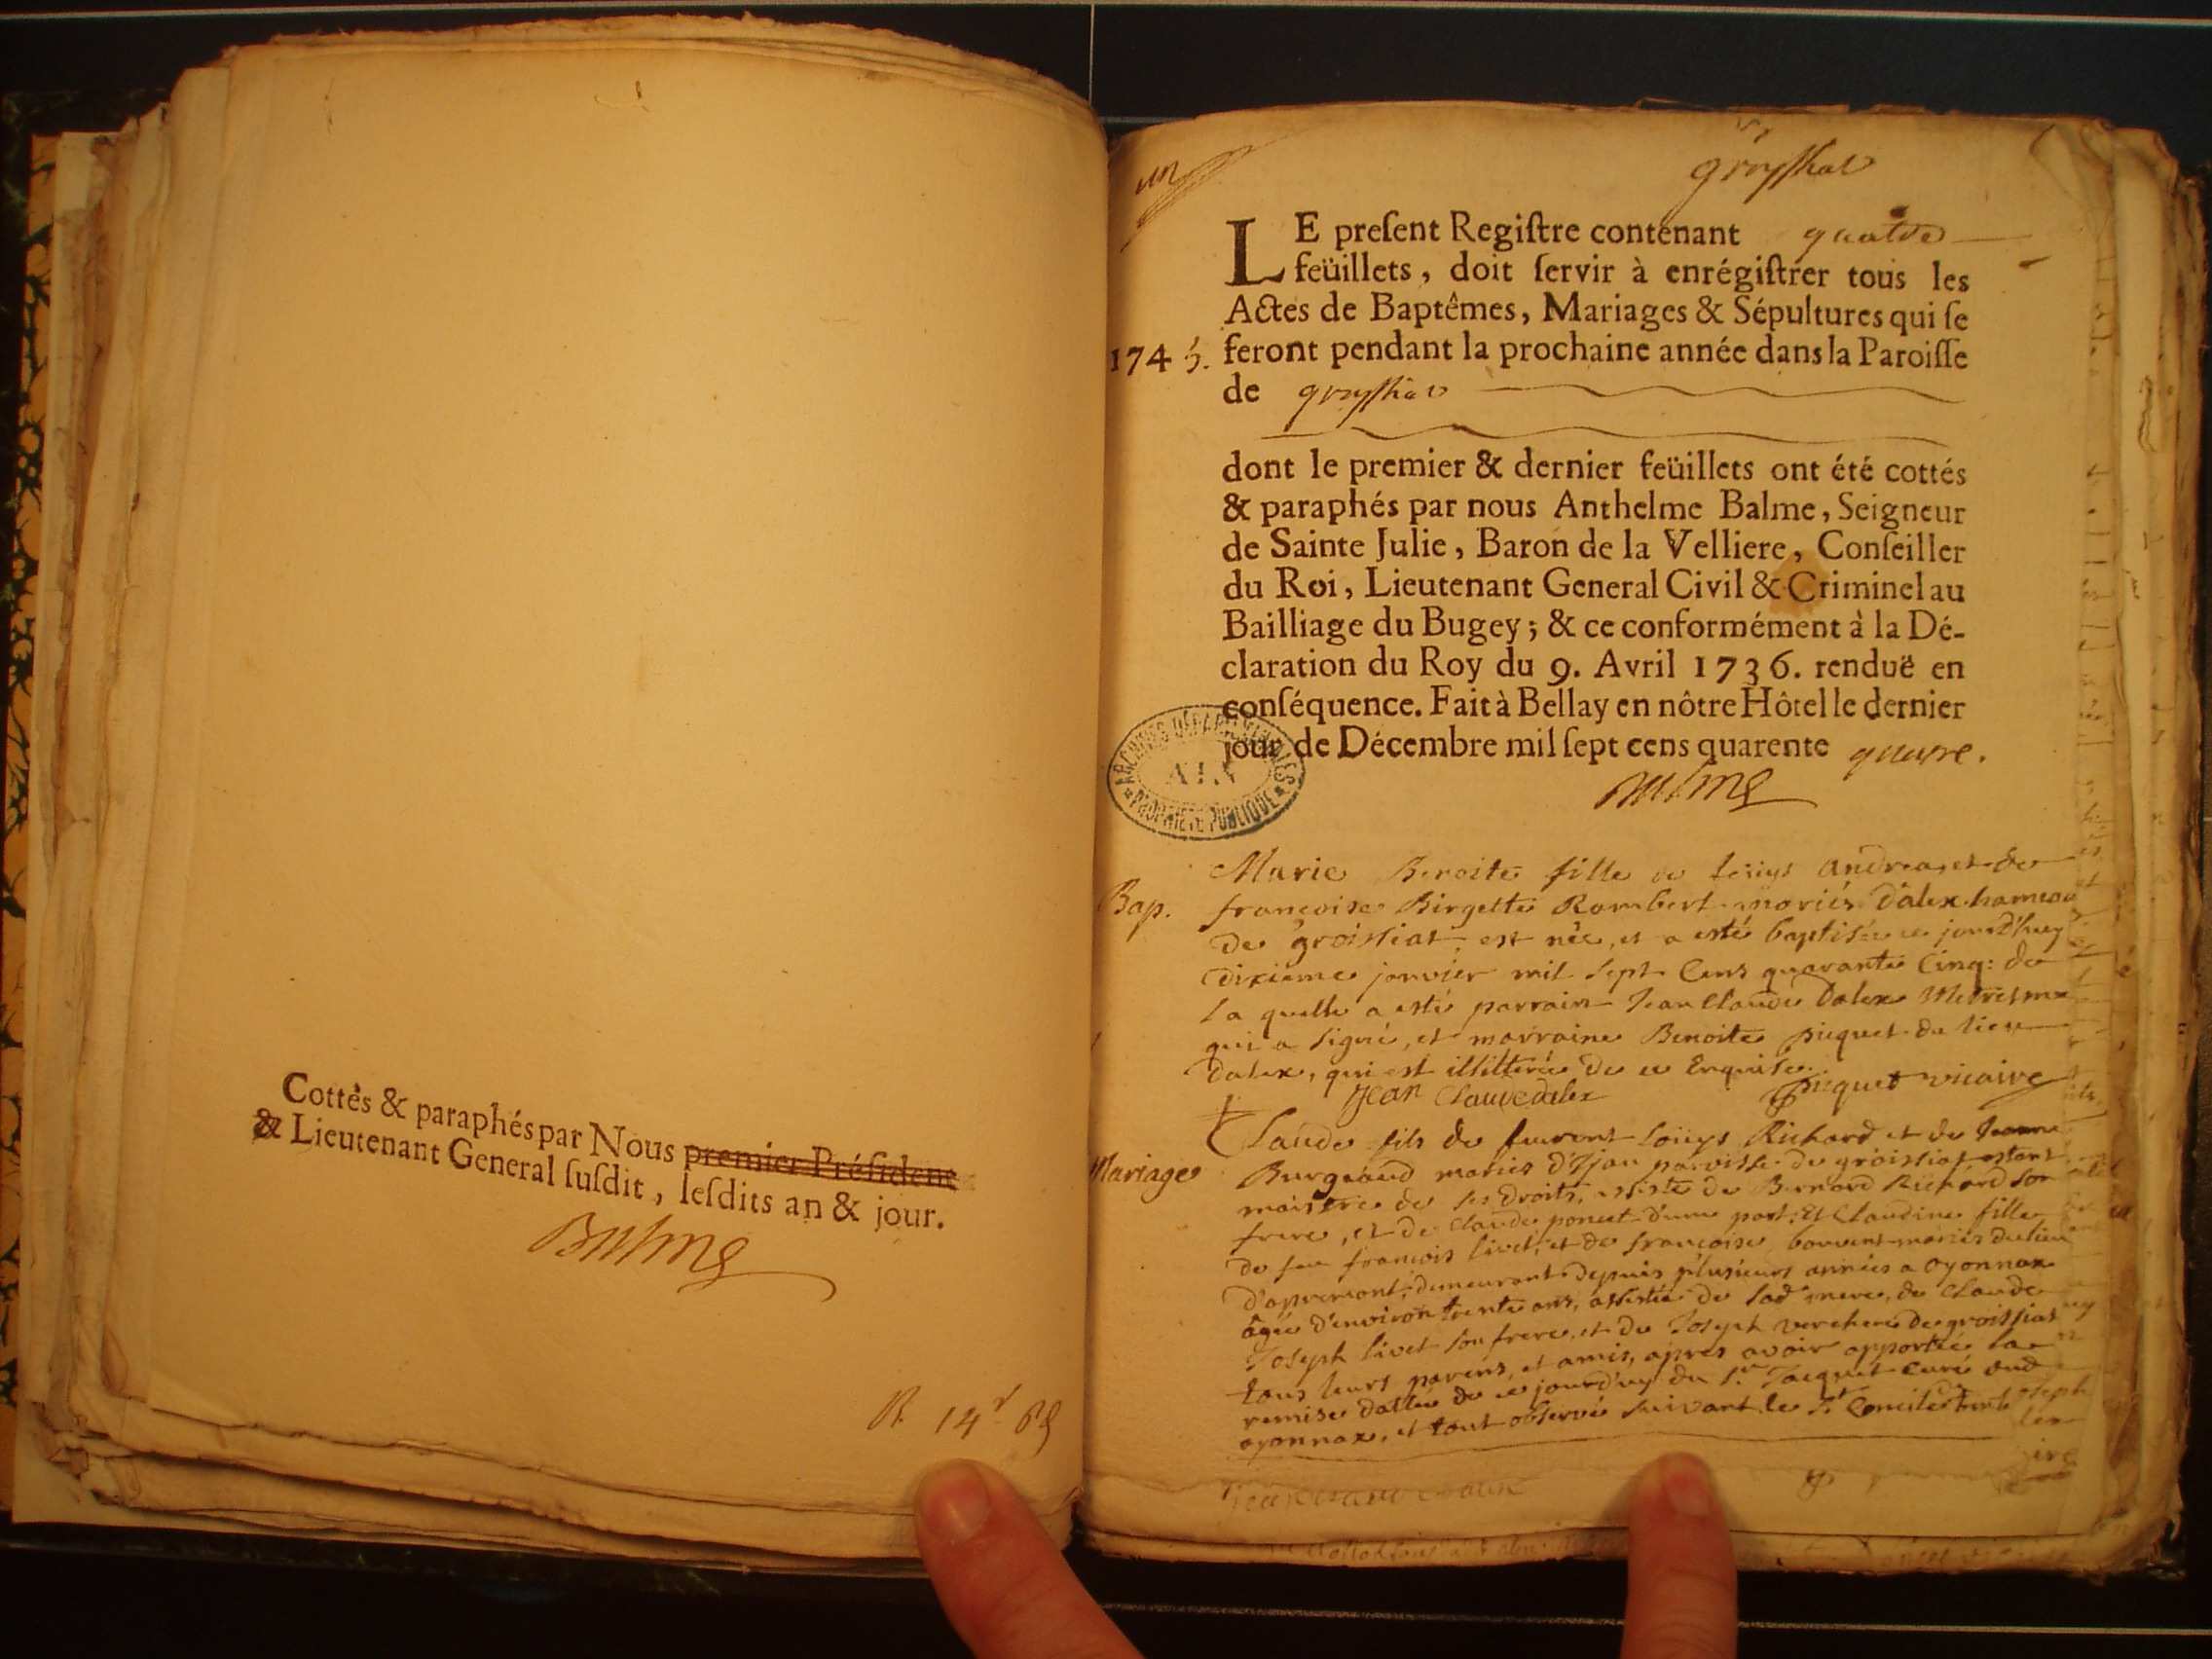 Cottès & paraphés par Nous premier Président
& Lieutenant General ſuſdit, leſdits an & jour.
Balme
R. 14
un
groyssiat
LE preſent Regiſtre contenant quatre
feüillets, doit ſervir à enrégiſtrer tous les
Actes de Baptêmes, Mariages & Sépultures qui ſe
1745. feront pendant la prochaine année dans la Paroiſſe
de groyssiat
dont le premier & dernier feüillets ont été cottés
& paraphés par nous Anthelme Balme, Seigneur
de Sainte Julie, Baron de la Velliere, Conſeiller
du Roi, Lieutenant General Civil & Criminel au
Bailliage du Bugey; & ce conformément à la Dé-
claration du Roy du 9. Avril 1736. renduë en
conſéquence. Fait à Bellay en nôtre Hôtel le dernier
jour de Décembre mil ſept cens quarente quatre.
Balme
ARCHIVES DÉPARTEMENTALES
AIN
PROPRIÉTÉ PUBLIQUE
Marie Benoite fille de loüys Andrea et de
Bap. francoise Birgette Rambert mariés dalex hameau
de groissiat, est née, et a esté baptisée ce jourd'huy
dixieme janvier mil sept cens quarante cinq: de
la quelle a esté parrain Jean Claude Dalex
qui a signé, et marraine Benoite picquet du lieu
dalex, qui est illitterée de ce Enquise.
Jean Claude dalex picquet vicaire
Claude fils de feu loüys Richard et de Jeanne
Mariage Burgaud mariés d'Ijan parroisse de groissiat estant
maistre de ses droits, assisté de Bernard Richard son
frere, et de Claude poncet d'une part; Et Claudine fille
de feu francois livet, et de francoise bouvent mariés du lieu
d'apremont, demeurant depuis plusieurs années a oyonnax
âgée d'environ trente ans, assistée de lad mere, de Claude
Joseph livet son frere, et de Joseph verchere de groissiat
tous leurs parens, et amis, apres avoir apportée la
remise dattée de ce jourd'uy du Sr Jacquet curé dud
oyonnax, et tout observé suivant le St Concile